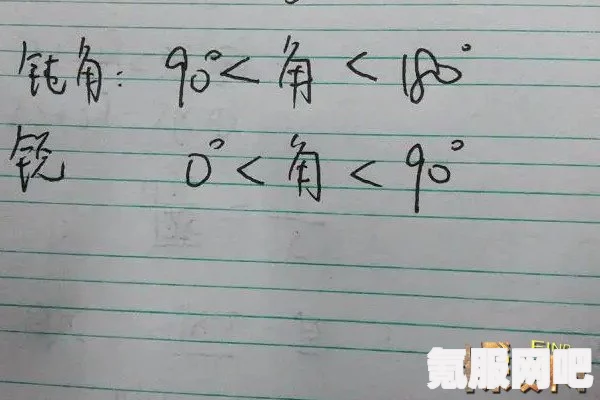 钝角：90°<角<180°
锐 0°<角<90°
FIND
氪服网吧